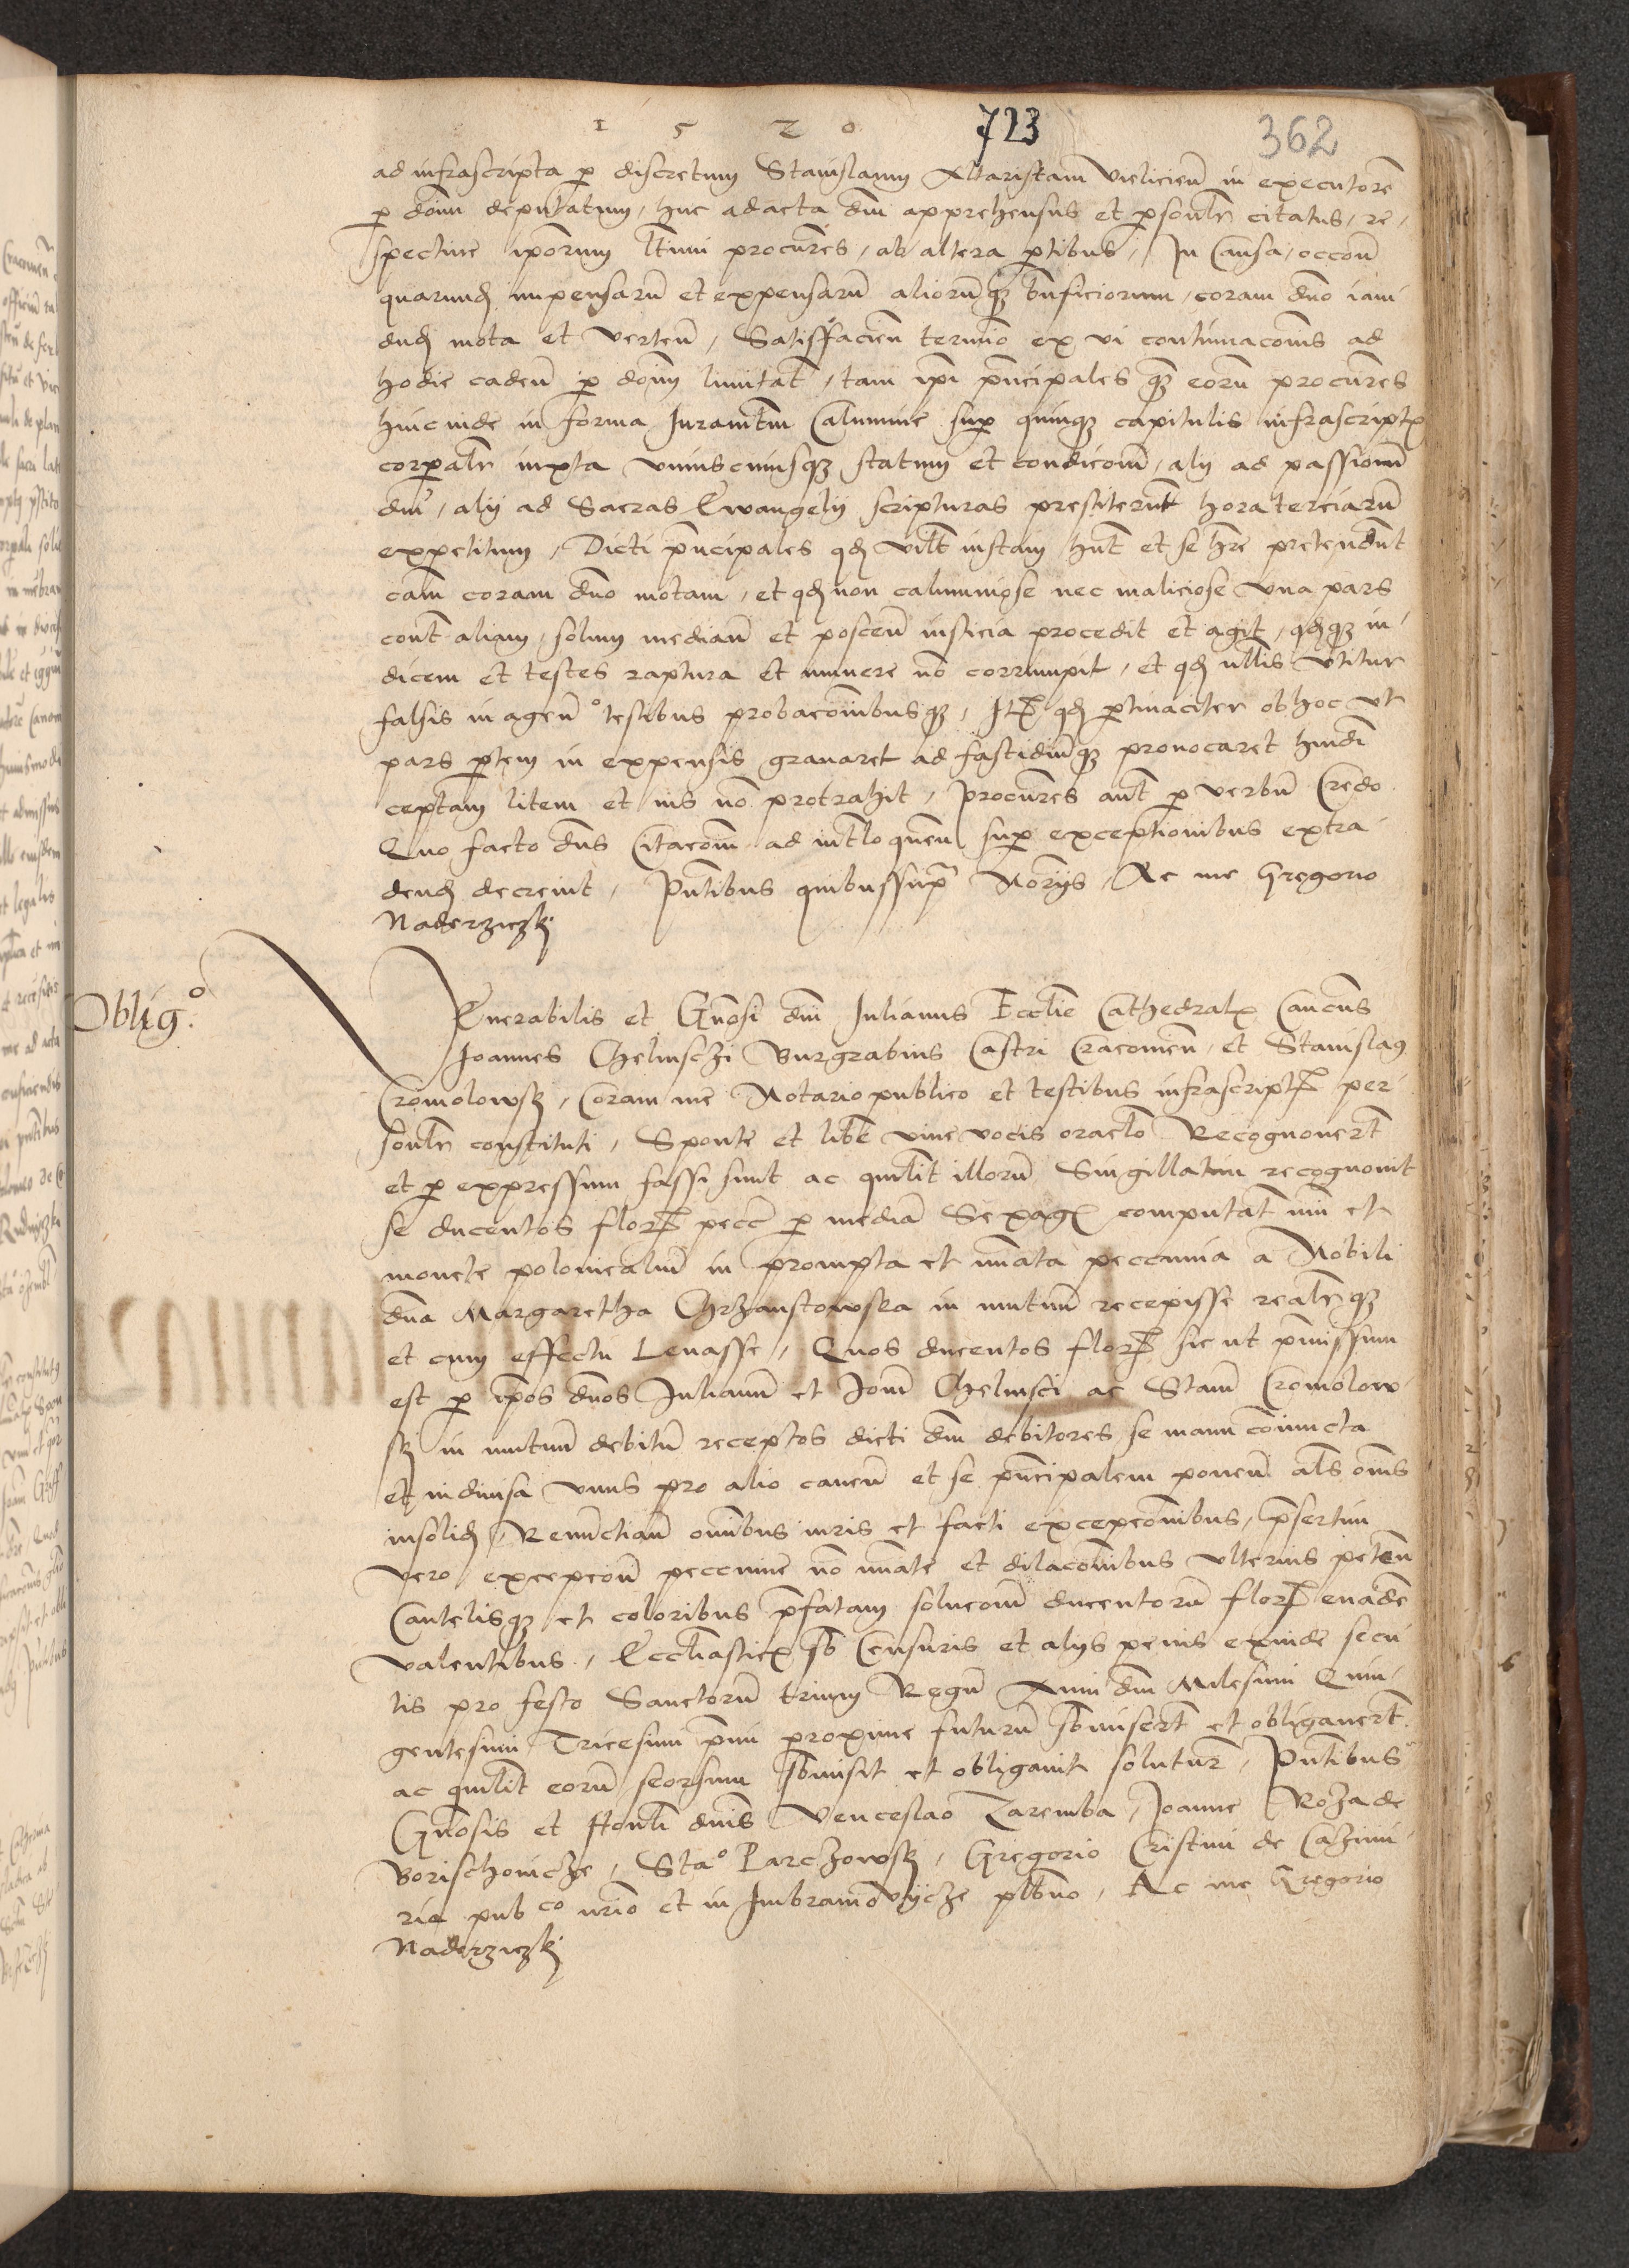 1520 723 362
ad infrascripta p discretum Stanislaum Altaristam Vieliciens in executore
p domi deputatum, huc ad acta dni apprehensus et psonlr citatus, re-
spective ipsorum ltimi procures, ab altera ptibus, In Causa occon
quarund impensaru et expensaru aliorumq bnficiorum, coram dno iam
dud mota et verten, Satisfacien termino ex vi contumaconis ad
hodie caden p domi limitat, tam ipi pncipales q eoru procures
hincinde in forma Juramtum Calumnie sup quinq capitulis infrascriptis
corporalr iuxta uniuscuiusq statum et condicom, alij ad passionem
dni, alij ad Sacras Ewangelij scripturas prestiterunt hora terciaru
expetitum, Dicti pncipales qd istam hnt et se hre pretendunt
cam coram dno motam, et qd non calumniose nec maliciose una pars
cont aliam, solum median et poscen iusticia procedit et agit, qdq iu-
dicem et testes raptura et munere no corrumpit, et qd ullis utitur
falsis in agen testibus probaconibusq, Itz qd ptinaciter ob hoc ut
pars ptem in expensis gravaret ad fastidiuq provocaret
ceptam litem et ius no protrahit, procures aut p verbu Credo
Quo facto dns Citacom ad intloquen sup exceptionibus extra-
dend decrevit, Pntibus quibussup Norijs, Ac me Gregorio
Naderziczky
Oblig°
Venerabilis et Gnosi dni Julianus Ecclie Cathedralis Canucus
Joannes Chelmsczi Burgrabius Castri Cracovien, et Stanislaus
Cromolowsky, Coram me Notario publico et testibus infrascriptis per-
sonlr constituti, Sponte et libe vive vocis oraclo Recognovert
et p expressum fassi sunt ac quilit illoru Singillatim recognovit
se ducentos flor pecc p media Sexag computat nui et
monete polonicalium in prompta et nuata peccunia a Nobili
dna Margaretha Chrzanstowska in mutuu recepisse realrq
et cum effectu Levasse, Quos ducentos flor sicut pmissum
est p ipos dnos Julianu et Joem Chelmsci ac Stam Cromolow-
sky in mutuu debitu receptos dicti dni debitores se manu coniuncta
et indivisa unus pro alio caven et se pncipalem ponen als ois
insolid, Renuctian omibus iuris et facti excepconibus, psertim
vero excepcon peccunie no nuate et dilaconibus ulterius peten
Cautelisq et coloribus pfatam solucom ducentoru flor evade
valentibus, Ecclastic sb Censuris et alijs penis exinde secu-
tis pro festo Sanctoru trium Regu Anni dni Milesimi Quin-
gentesimi Tricesimi pmi proxime futuru sbmisert et obligavert
ac quilit eoru seorsum sbmisit et obligavit solutur, Pntibus
Gnosis et dnis Venceslao Zaremba, Joanne Roza de
Borischovicze, Sta° Parczowsky, Gregorio Cristini de Cazimi-
ria pubco nrio et in Imbramovijcze plbno, Ac me Gregorio
Naderziczky